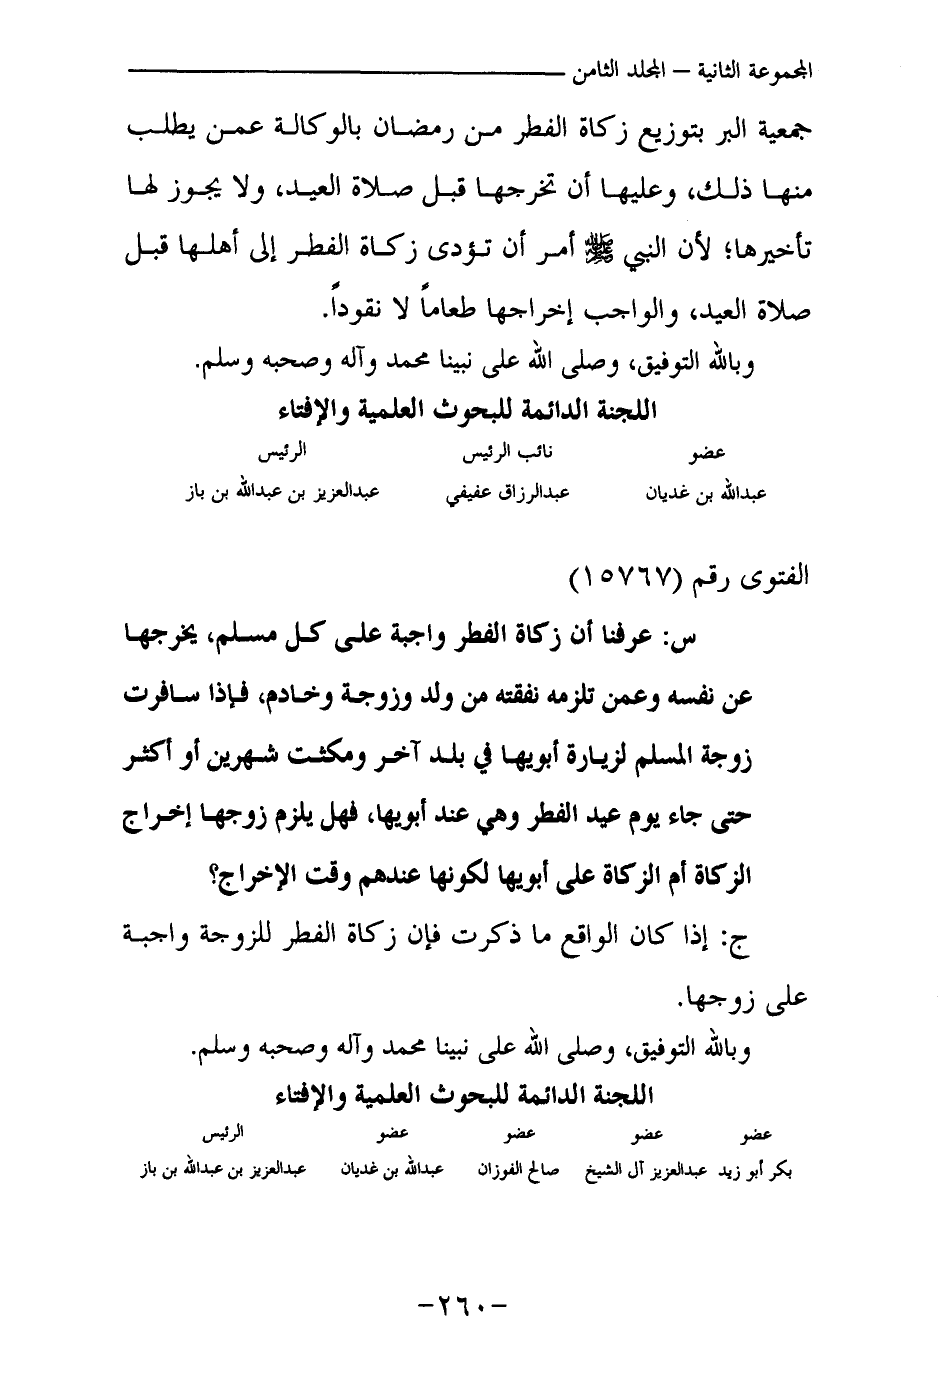 المجموعة الثانية – المجلد الثامن
جمعية البر بتوزيع زكاة الفطر من رمضان بالوكالة عمن يطلب
منها ذلك، وعليها أن تخرجها قبل صلاة العيد، ولا يجوز لها
تأخيرها؛ لأن النبي ﷺ أمر أن تؤدى زكاة الفطر إلى أهلها قبل
صلاة العيد، والواجب إخراجها طعاماً لا نقوداً.
وبالله التوفيق، وصلى الله على نبينا محمد وآله وصحبه وسلم.
اللجنة الدائمة للبحوث العلمية والإفتاء
عضو نائب الرئيس الرئيس
عبدالله بن غديان عبدالرزاق عفيفي عبدالعزيز بن عبدالله بن باز
الفتوى رقم (١٥٧٦٧)
س: عرفنا أن زكاة الفطر واجبة على كل مسلم، يخرجها
عن نفسه وعمن تلزمه نفقته من ولد وزوجة وخادم، فإذا سافرت
زوجة المسلم لزيارة أبويها في بلد آخر ومكثت شهرين أو أكثر
حتى جاء يوم عيد الفطر وهي عند أبويها، فهل يلزم زوجها إخراج
الزكاة أم الزكاة على أبويها لكونها عندهم وقت الإخراج؟
ج: إذا كان الواقع ما ذكرت فإن زكاة الفطر للزوجة واجبة
على زوجها.
وبالله التوفيق، وصلى الله على نبينا محمد وآله وصحبه وسلم.
اللجنة الدائمة للبحوث العلمية والإفتاء
عضو عضو عضو عضو الرئيس
بكر أبو زيد عبدالعزيز آل الشيخ صالح الفوزان عبدالله بن غديان عبدالعزيز بن عبدالله بن باز
-٢٦٠-